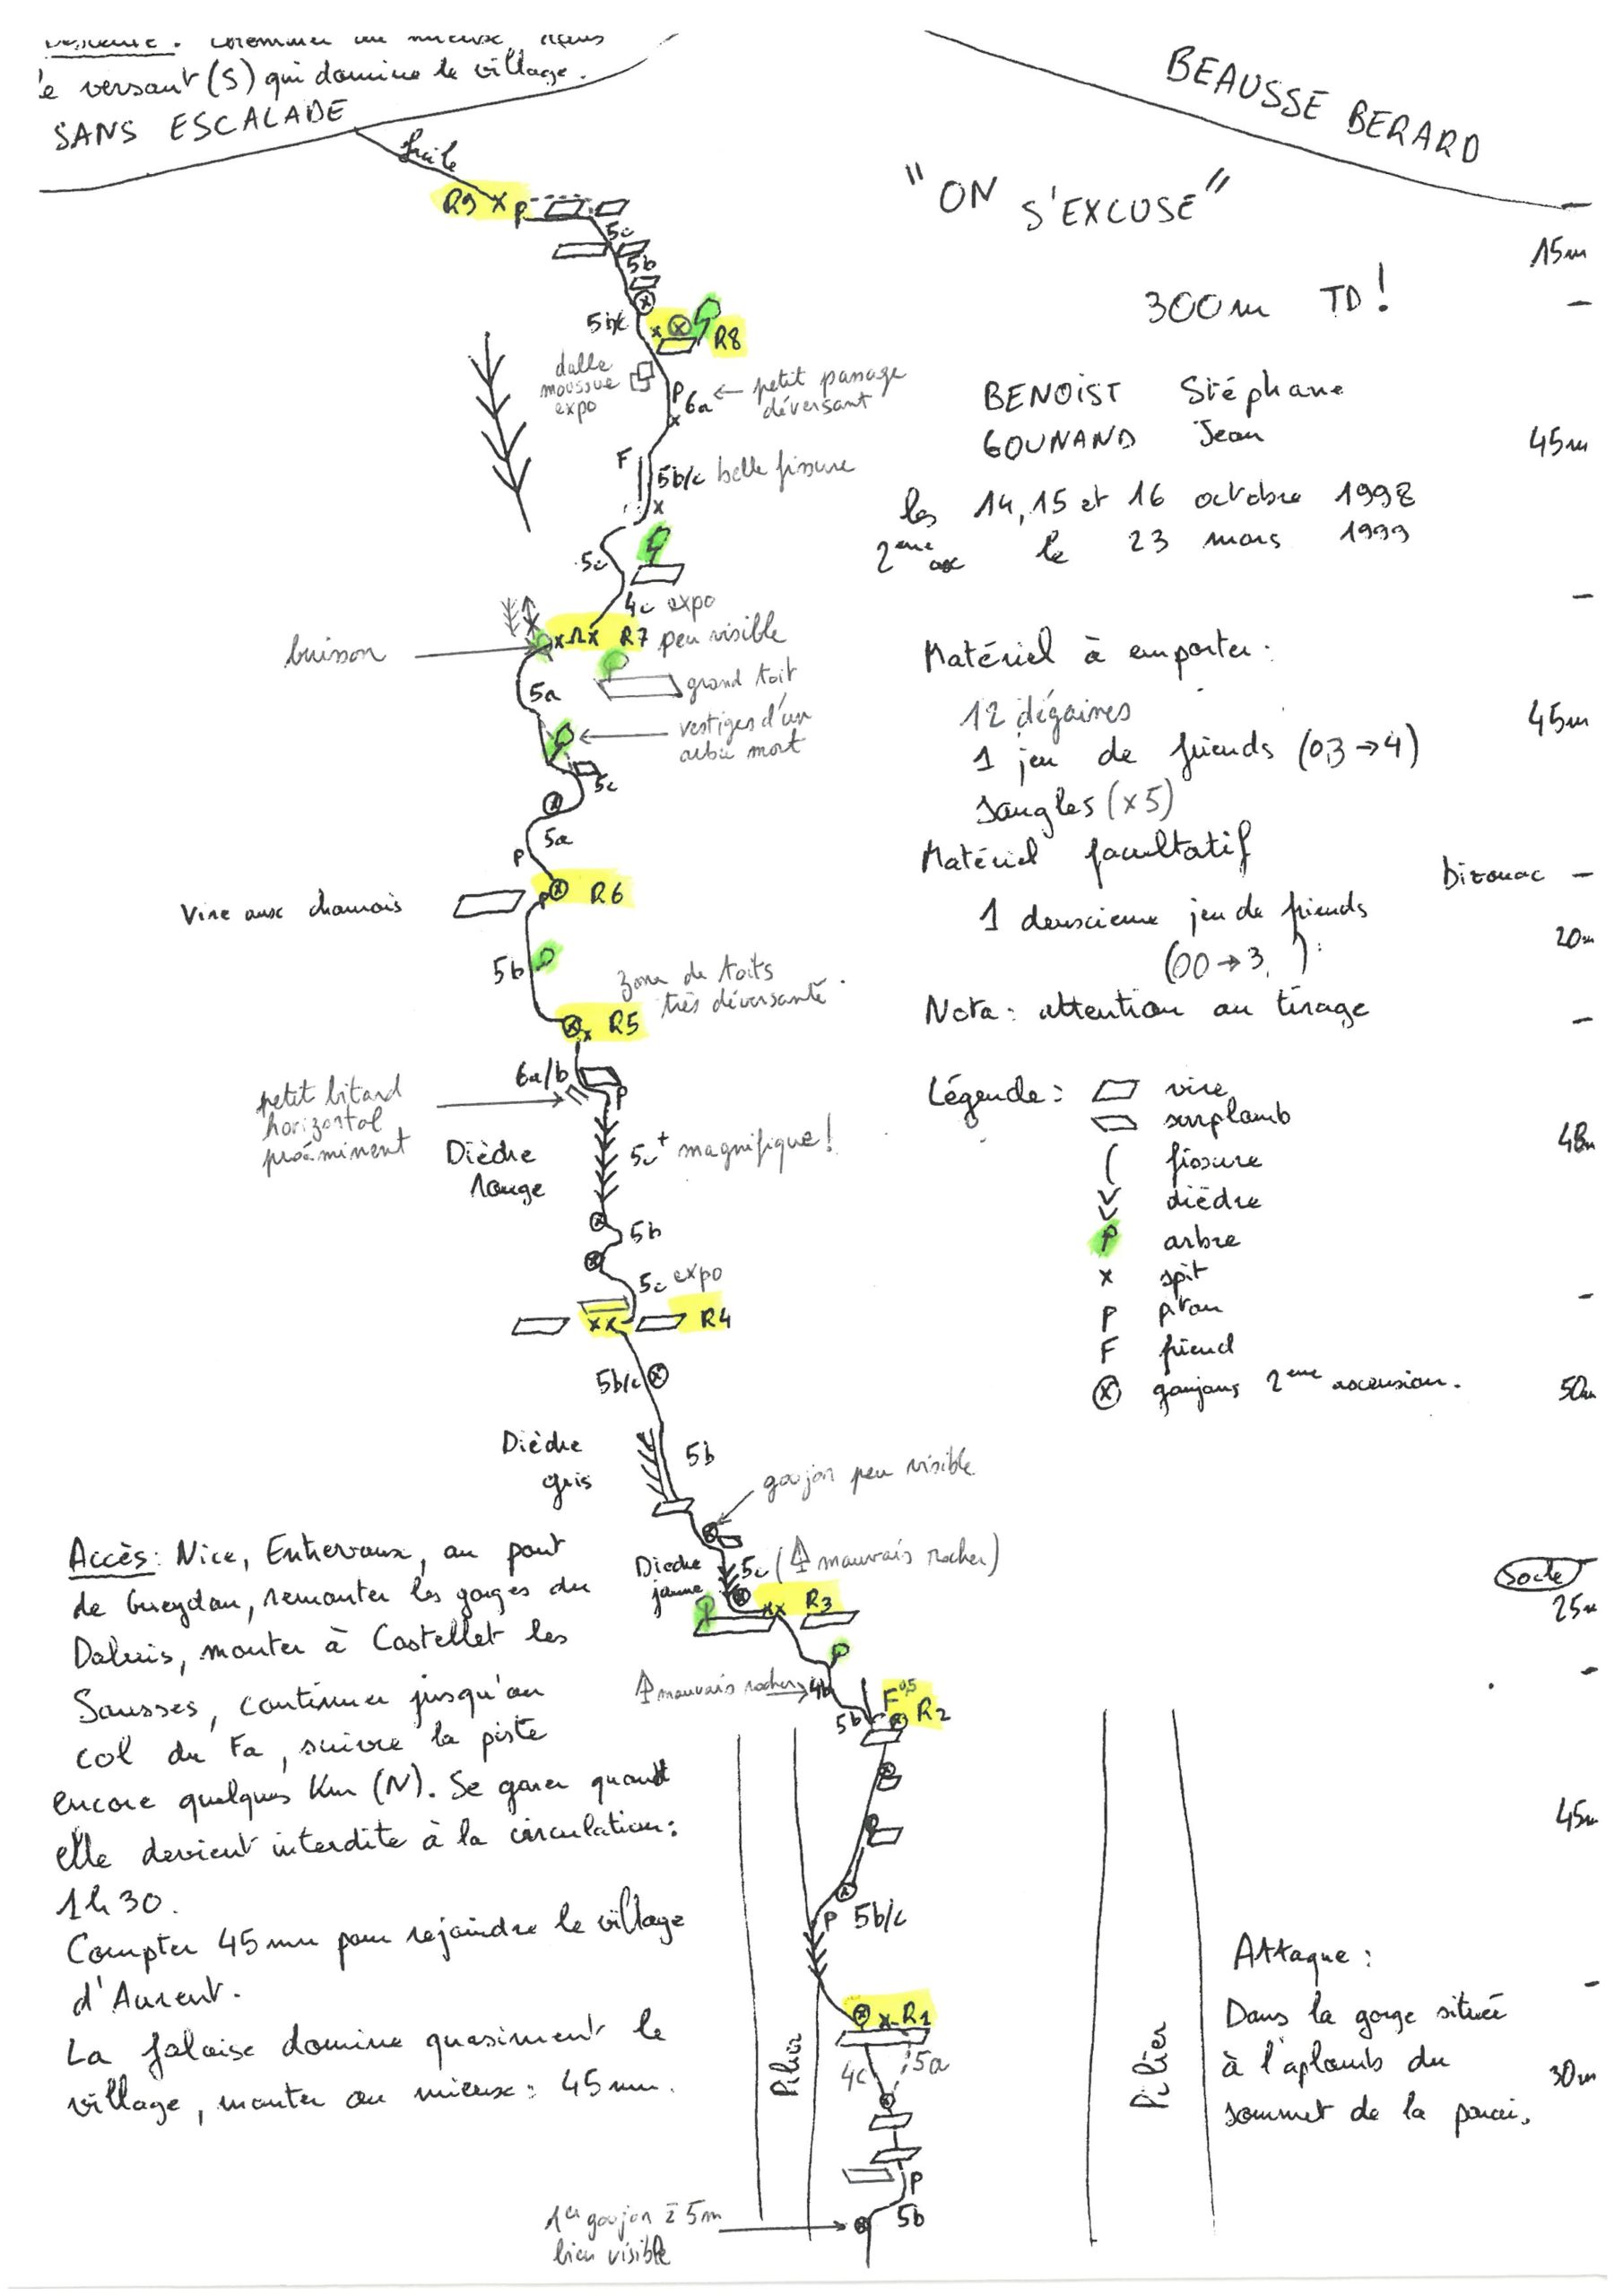 versant (S) qui domine le village.
SANS ESCALADE
BEAUSSE BERARD
"ON S'EXCUSE"
300m TD!
BENOIST Stéphane
GOUNAND Jean
les 14, 15 et 16 octobre 1998
2eme asc le 23 mars 1999
Matériel à emporter:
12 dégaines
1 jeu de friends (0,3→4)
Sangles (x5)
Matériel facultatif
1 deuxième jeu de friends
(00→3, ):
Nota: attention au tirage
Légende:
vire
surplomb
fissure
dièdre
P arbre
x spit
P piton
F friend
goujons 2eme ascension.
15m
45m
45m
Bivouac
20m
48m
50m
Socle
25m
45m
30m
facile
R9 x P
5c
5b
5b/c
x R8
dalle
moussue
expo
P
6a ← petit passage
déversant
x
F
5b/c belle fissure
x
5c
4c expo
R7 peu visible
buisson
grand toit
5a
vestiges d'un
arbre mort
5c
5a
P
R6
Vire aux chamois
P
5b
zone de toits
très déversante.
x R5
6a/b
P
petit bitard
horizontal
proéminent
Dièdre
rouge
5c+ magnifique!
5b
5c expo
xx R4
5b/c
Dièdre
gris
5b
goujon peu visible
Dièdre
jaune
5c (mauvais rocher)
xx R3
mauvais rocher
4b
5b
F 0,5
R2
5b/c
P
x R1
4c
5a
P
5b
1er goujon à 5m
bien visible
Pilier
Pilier
Accès: Nice, Entrevaux, au pont
de Gueydan, remonter les gorges du
Daluis, monter à Castellet les
Sausses, continuer jusqu'au
col du Fa, suivre la piste
encore quelques Km (N). Se garer quand
elle devient interdite à la circulation:
1h30.
Compter 45mn pour rejoindre le village
d'Aurent.
La falaise domine quasiment le
village, monter au mieux: 45mn.
Attaque:
Dans la gorge située
à l'aplomb du
sommet de la paroi.